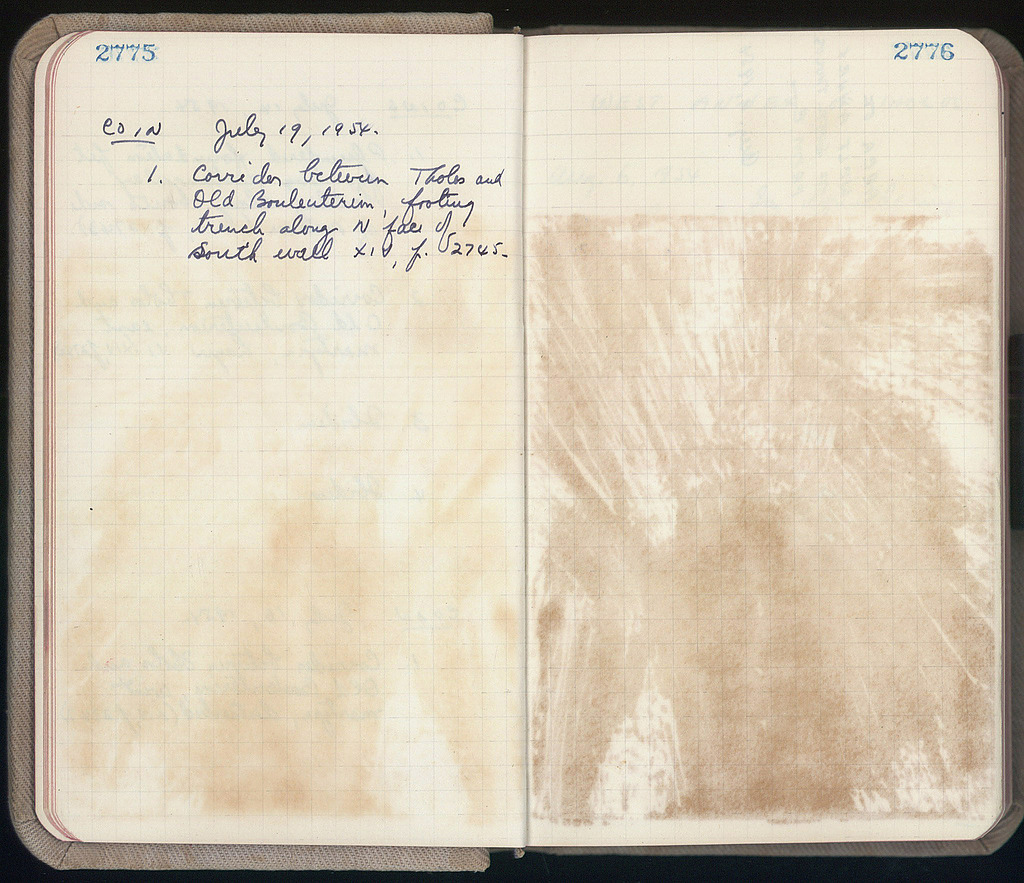 2775
2776
COIN July 19, 1954.
1. Corridor between Tholos and
Old Bouleuterion, footing
trench along N face of
South wall XIV, p. 2745.